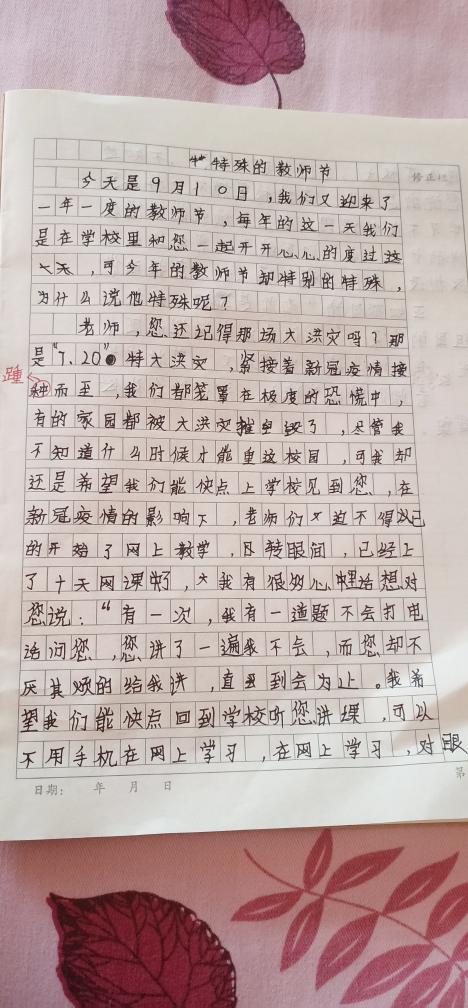 特殊的教师节
修正栏
今天是9月10日，我们又迎来了
一年一度的教师节，每年的这一天我们
是在学校里和您一起开开心心的度过这
一天，可今年的教师节却特别的特殊，
为什么说他特殊呢？
老师，您还记得那场大洪灾吗？那
是"7、20"特大洪灾，紧接着新冠疫情接
踵
种而至，我们都笼罩在极度的恐慌中，
有的家园都被大洪灾摧毁了，尽管我
不知道什么时候才能重返校园，可我却
还是希望我们能快点上学校见到您，在
新冠疫情的影响下，老师们又迫不得以已
的开始了网上教学，转眼间，已经上
了十天网课了，我有很多心里话想对
您说："有一次，我有一道题不会打电
话问您，您讲了一遍我不会，而您却不
厌其烦的给我讲，直到会为止。我希
望我们能快点回到学校听您讲课，可以
不用手机在网上学习，在网上学习，对眼
日期： 年 月 日
第